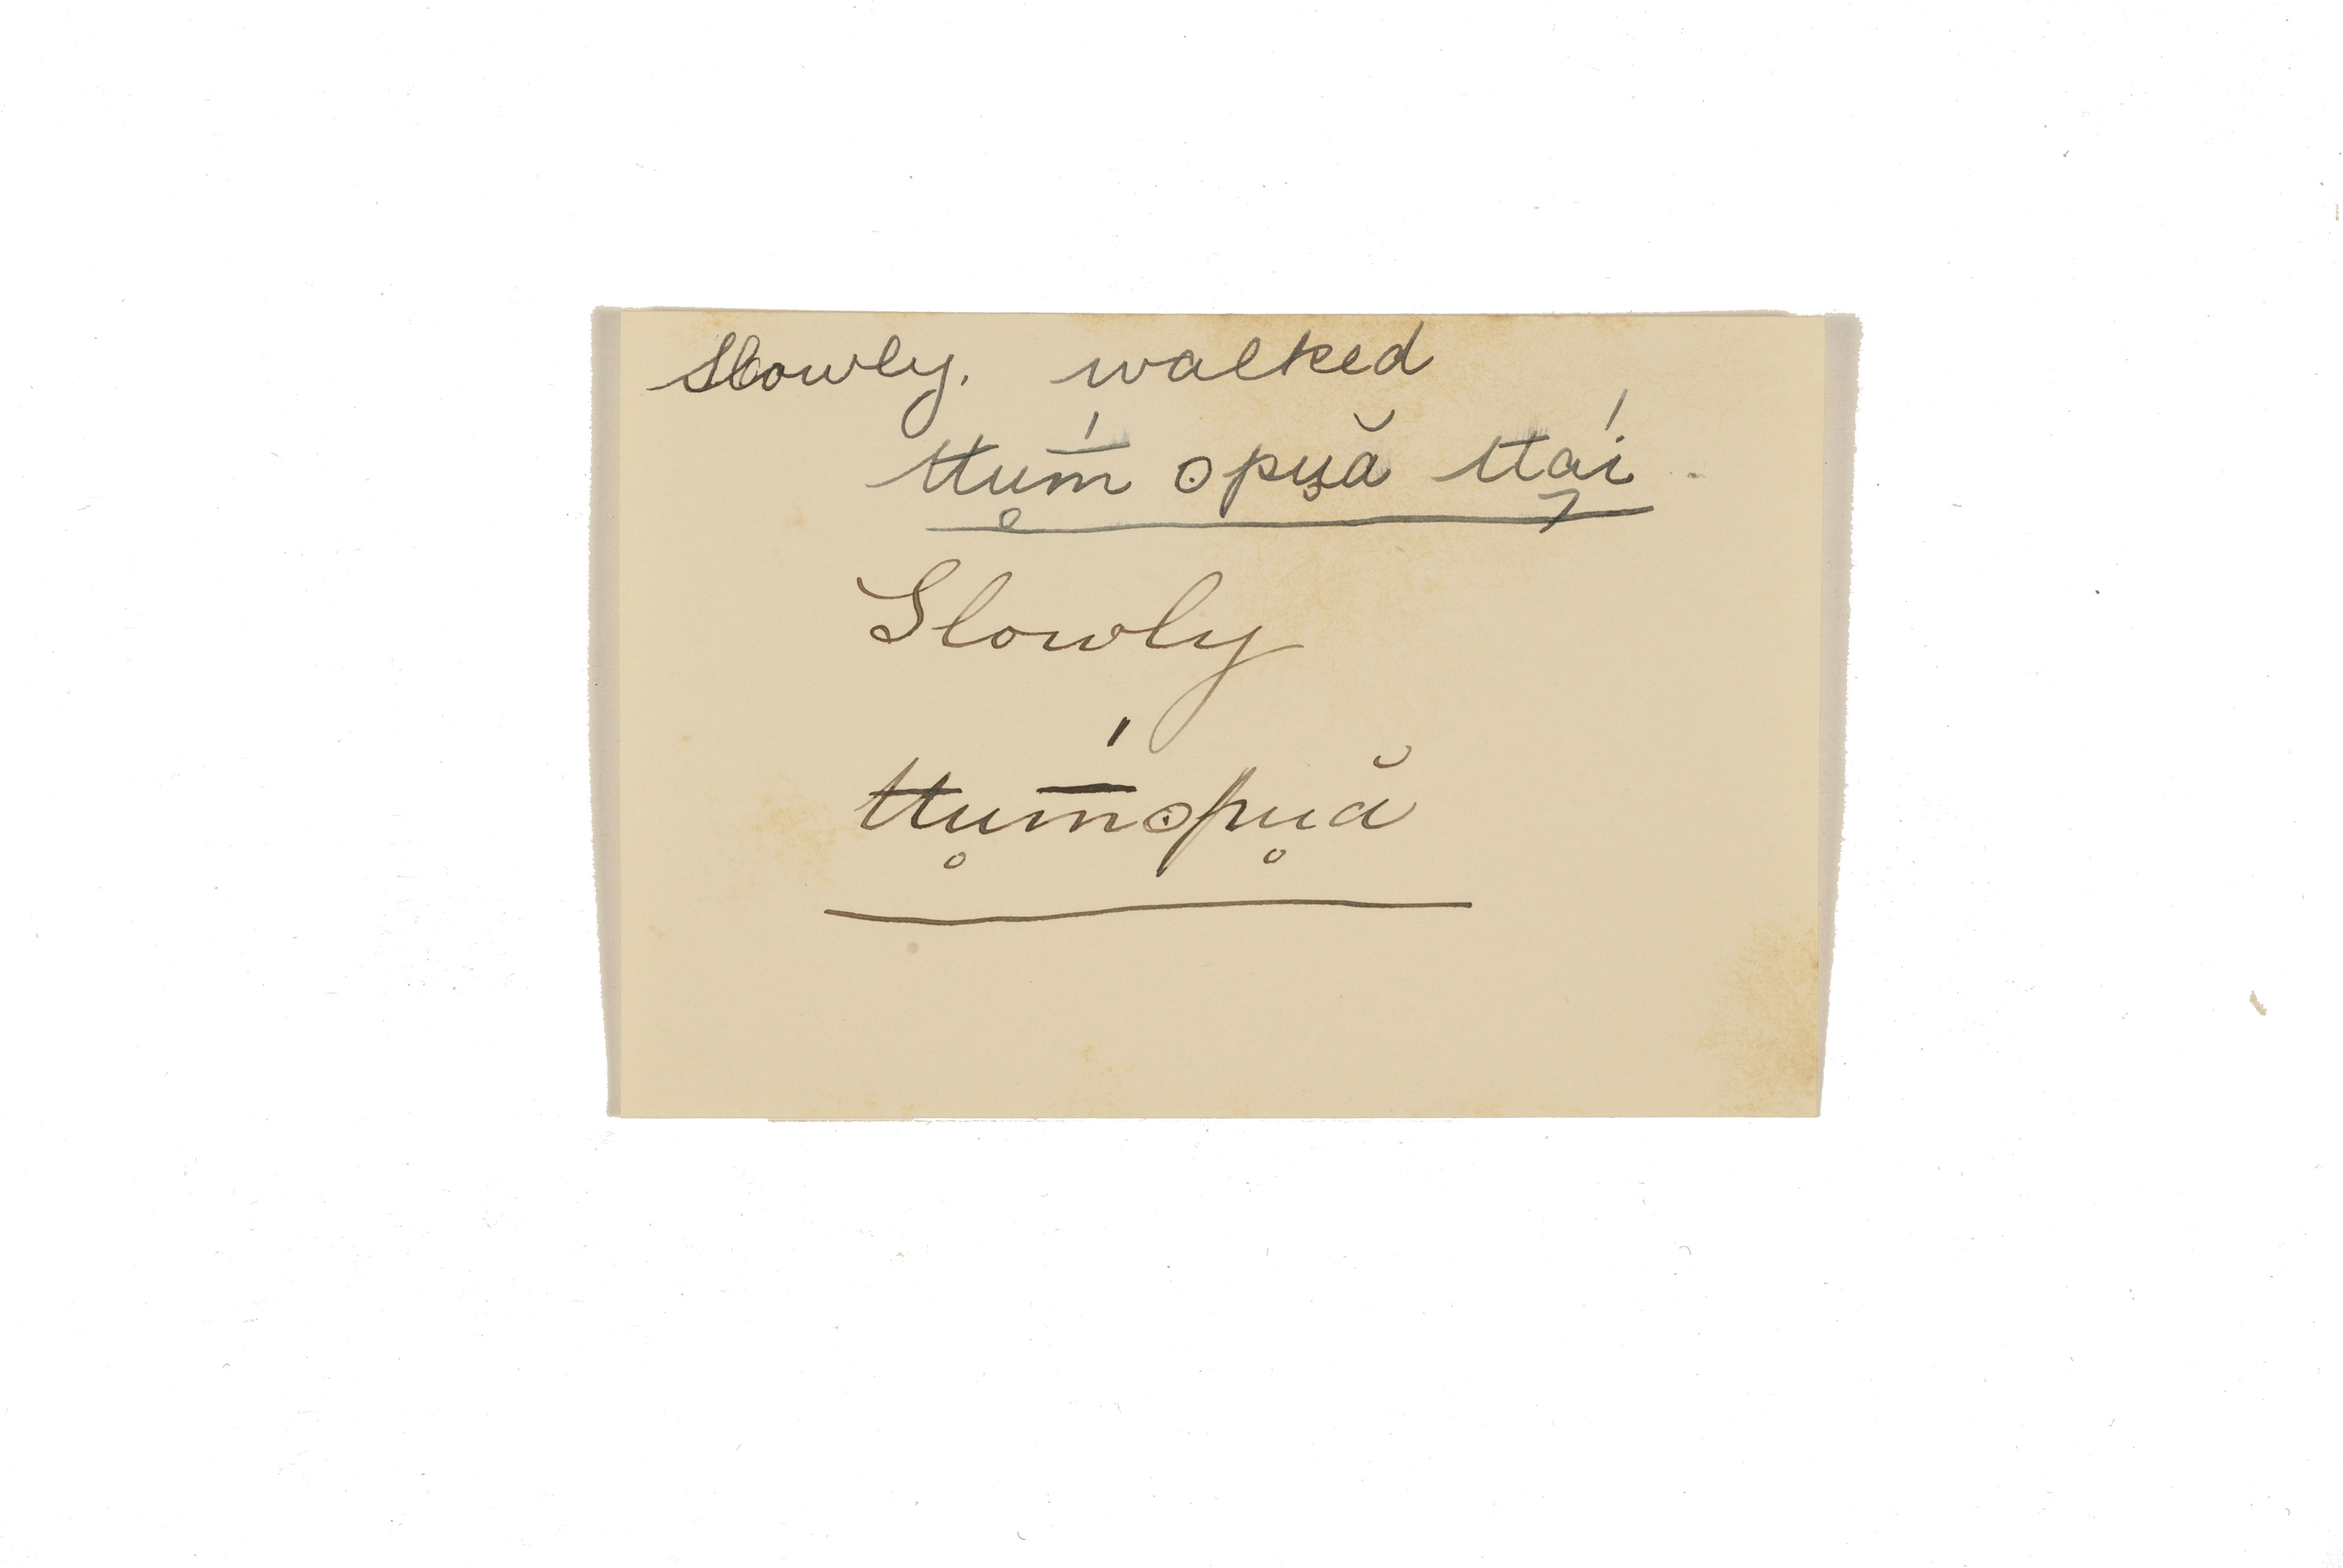 Slowly, walked
ttu̥m̄́ ọpu̥ă ttái
Slowly
ttu̥m̄́ọpu̥ă